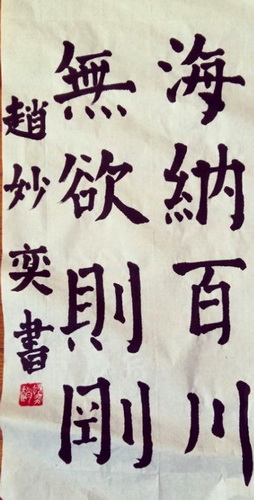 海納百川
無欲則剛
趙妙奕書